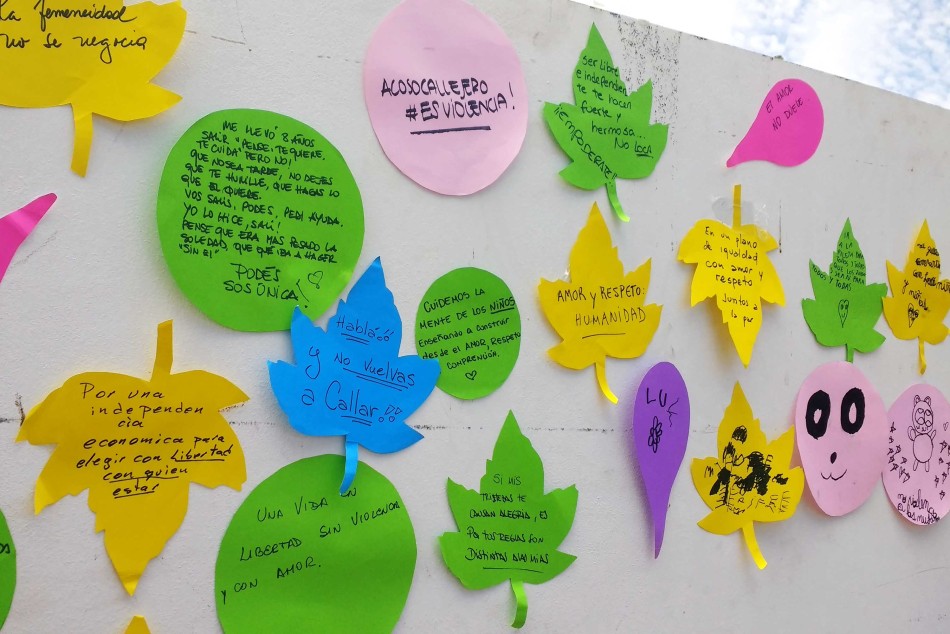 la femeneidad
no se negocia
ACOSO CALLEJERO
#ES VIOLENCIA!
SER LIBRE
e independien
te te hacen
fuerte y
hermosa...
No loca
¡¡EMPODERATE!!
El AMOR
NO DUELE
ME LLEVÓ 8 AÑOS
SALIR "PENSÉ: TE QUIERE.
TE CUIDA" PERO NO!
QUE NO SEA TARDE, NO DEJES
QUE TE HUMILLE, QUE HAGAS LO
QUE EL QUIERE.
VOS SALIS, PODES, PEDI AYUDA.
YO LO HICE, SALÍ!
PENSE QUE ERA MAS PESADO LA
SOLEDAD, QUE QUE IBA A HACER
"SIN EL"
PODÉS
SOS ÚNICA
Hablá!!
y NO VUELVAS
a Callar!!
CUIDEMOS LA
MENTE DE LOS NIÑOS
Enseñando a construir
desde el AMOR, Respeto
COMPRENSIÓN.
AMOR Y RESPETO:
HUMANIDAD
En un plano de
igualdad
con amor y
respeto
Juntos a
la par
TODOS Y
TODAS
Por una
independen
cia
economica para
elegir con Libertad
con quien
estar
UNA VIDA EN
LIBERTAD SIN VIOLENCIA
Y CON AMOR.
SI MIS
TRISTEZAS TE
CAUSAN ALEGRIA, ES
PQ TUS REGLAS SON
DISTINTAS A LAS MIAS
LU